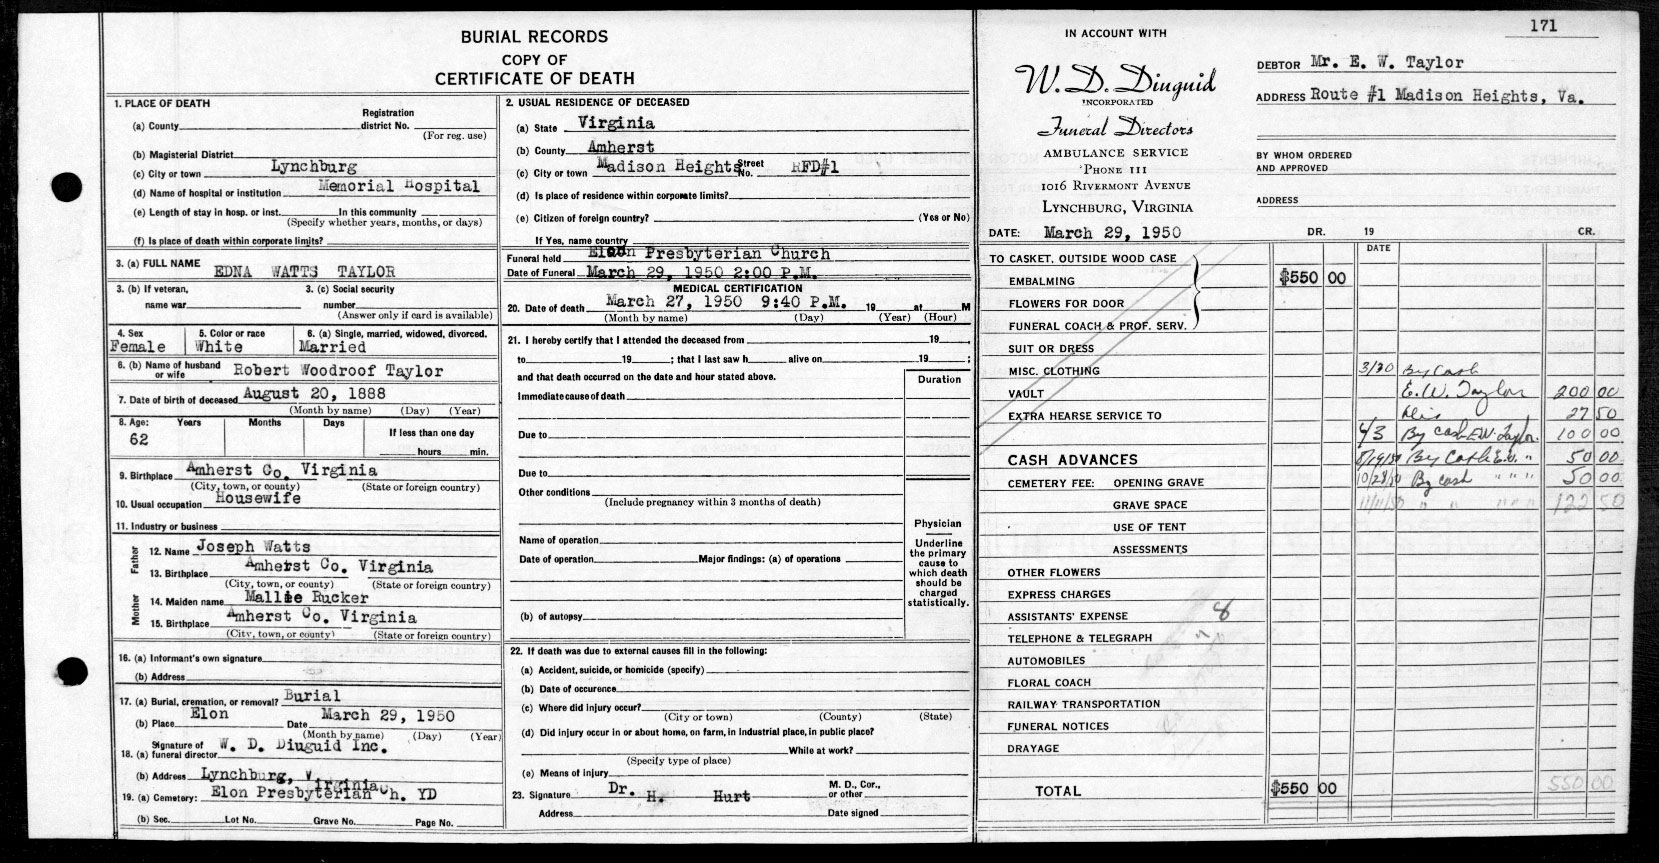 BURIAL RECORDS
COPY OF
CERTIFICATE OF DEATH
1. PLACE OF DEATH
Registration
(a) County district No.
(For reg. use)
(b) Magisterial District
(c) City or town Lynchburg
(d) Name of hospital or institution Memorial Hospital
(e) Length of stay in hosp. or inst. In this community
(Specify whether years, months, or days)
(f) Is place of death within corporate limits?
3. (a) FULL NAME EDNA WATTS TAYLOR
3. (b) If veteran, 3. (c) Social security
name war number
(Answer only if card is available)
4. Sex 5. Color or race 6. (a) Single, married, widowed, divorced.
Female White Married
6. (b) Name of husband or wife Robert Woodroof Taylor
7. Date of birth of deceased August 20, 1888
(Month by name) (Day) (Year)
8. Age: Years Months Days If less than one day
62 hours min.
9. Birthplace Amherst Co. Virginia
(City, town, or county) (State or foreign country)
10. Usual occupation Housewife
11. Industry or business
Father
12. Name Joseph Watts
13. Birthplace Amherst Co. Virginia
(City, town, or county) (State or foreign country)
Mother
14. Maiden name Mallie Rucker
15. Birthplace Amherst Co. Virginia
(City, town, or county) (State or foreign country)
16. (a) Informant's own signature
(b) Address
17. (a) Burial, cremation, or removal? Burial
(b) Place Elon Date March 29, 1950
(Month by name) (Day) (Year)
18. (a) Signature of funeral director W. D. Diuguid Inc.
(b) Address Lynchburg, Virginia
19. (a) Cemetery: Elon Presbyterian Ch. YD
(b) Sec. Lot No. Grave No. Page No.
2. USUAL RESIDENCE OF DECEASED
(a) State Virginia
(b) County Amherst
(c) City or town Madison Heights Street No. RFD#1
(d) Is place of residence within corporate limits?
(e) Citizen of foreign country? (Yes or No)
If Yes, name country
Funeral held Elon Presbyterian Church
Date of Funeral March 29, 1950 2:00 P.M.
MEDICAL CERTIFICATION
20. Date of death March 27, 1950 9:40 P.M. 19 at M
(Month by name) (Day) (Year) (Hour)
21. I hereby certify that I attended the deceased from 19 ,
to 19 ; that I last saw h alive on 19 ;
and that death occurred on the date and hour stated above.
Duration
Immediate cause of death
Due to
Due to
Other conditions
(Include pregnancy within 3 months of death)
Physician
Underline the primary cause to which death should be charged statistically.
Name of operation
Date of operation Major findings: (a) of operations
(b) of autopsy
22. If death was due to external causes fill in the following:
(a) Accident, suicide, or homicide (specify)
(b) Date of occurence
(c) Where did injury occur?
(City or town) (County) (State)
(d) Did injury occur in or about home, on farm, in industrial place, in public place?
While at work?
(Specify type of place)
(e) Means of injury
23. Signature Dr. H. Hurt M. D., Cor., or other
Address Date signed
171
IN ACCOUNT WITH
W. D. Diuguid
INCORPORATED
Funeral Directors
AMBULANCE SERVICE
'PHONE 111
1016 RIVERMONT AVENUE
LYNCHBURG, VIRGINIA
DATE: March 29, 1950
DEBTOR Mr. E. W. Taylor
ADDRESS Route #1 Madison Heights, Va.
BY WHOM ORDERED
AND APPROVED
ADDRESS
DR. 19 CR.
DATE
TO CASKET, OUTSIDE WOOD CASE
EMBALMING $550 00
FLOWERS FOR DOOR
FUNERAL COACH & PROF. SERV.
SUIT OR DRESS
MISC. CLOTHING 3/30 By Cash
VAULT E. W. Taylor 200 00
EXTRA HEARSE SERVICE TO Dis 27 50
4/3 By cash E.W. Taylor. 100 00
CASH ADVANCES 8/19/50 By Cash E.W. " 50 00
CEMETERY FEE: OPENING GRAVE 10/28/50 By cash " " " 50 00
GRAVE SPACE 11/11/50 " " " " " 122 50
USE OF TENT
ASSESSMENTS
OTHER FLOWERS
EXPRESS CHARGES
ASSISTANTS' EXPENSE
TELEPHONE & TELEGRAPH
AUTOMOBILES
FLORAL COACH
RAILWAY TRANSPORTATION
FUNERAL NOTICES
DRAYAGE
TOTAL $550 00 550 00